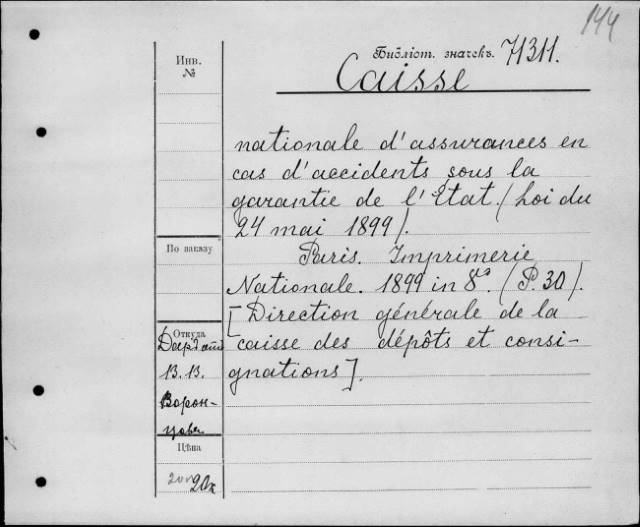 144
Инв.
№
Библіот. значекъ. 71311.
Caisse
nationale d'assurances en
cas d'accidents sous la
garantie de l'État. (Loi du
24 mai 1899).
По заказу
Paris. Imprimerie
Nationale. 1899 in 8°. (P. 30).
[Direction générale de la
caisse des dépôts et consi-
gnations].
Откуда
В.В.
Ворон-
цова
Цѣна
20к